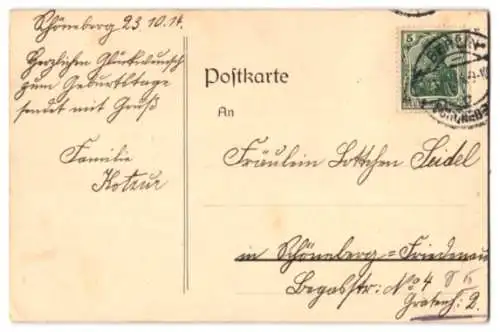 Schöneberg 23.10.14.
Herzlichen Glückwunsch
zum Geburtstage
sendet mit Gruß
Familie
Kotzur
Postkarte
An
Fräulein Lottchen Seidel
in Schöneberg=Friedenau
Begasstr: No 4
5 5
BERLIN